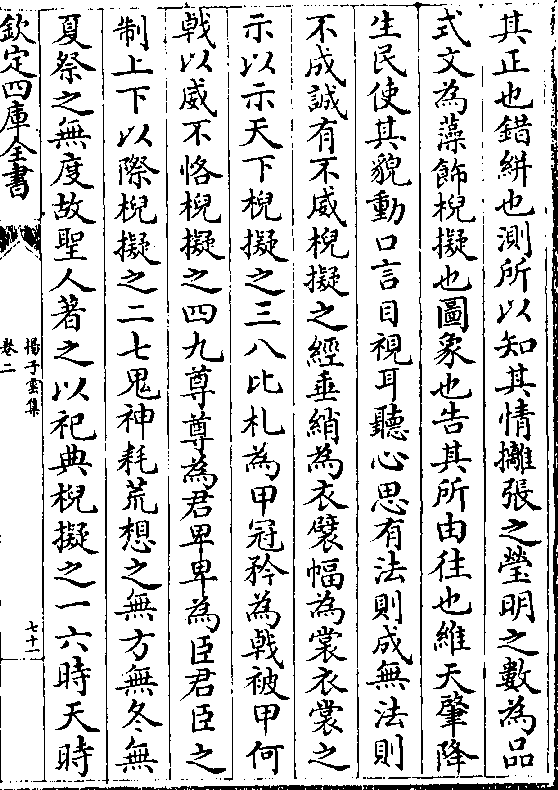 其正也錯絣也測所以知其情攡張之瑩明之數為品
式文為藻飾棿擬也圖象也告其所由往也維天肇降
生民使其貌動口言目視耳聽心思有法則成無法則
不成誠有不威棿擬之經垂綃為衣襞幅為裳衣裳之
示以示天下棿擬之三八比札為甲冠矜為戟被甲何
戟以威不恪棿擬之四九尊尊為君卑卑為臣君臣之
制上下以際棿擬之二七鬼神耗荒想之無方無冬無
夏祭之無度故聖人著之以祀典棿擬之一六時天時
欽定四庫全書
揚子雲集
卷二
七十一